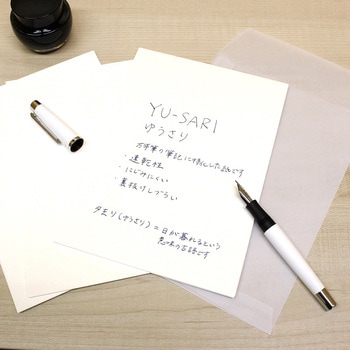 YU-SARI
ゆうさり
万年筆の筆記に特化した紙です
・速乾性
・にじみにくい
・裏抜けしづらい
夕まり(ゆうさり)=日が暮れるという
意味の古語です